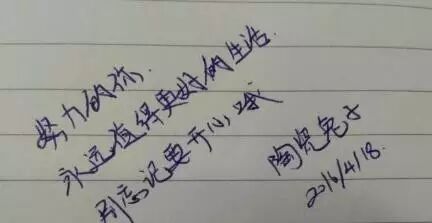 努力的你.
永远值得更好的生活.
别忘记要开心哦
陶瓷兔子
2016/4/18.